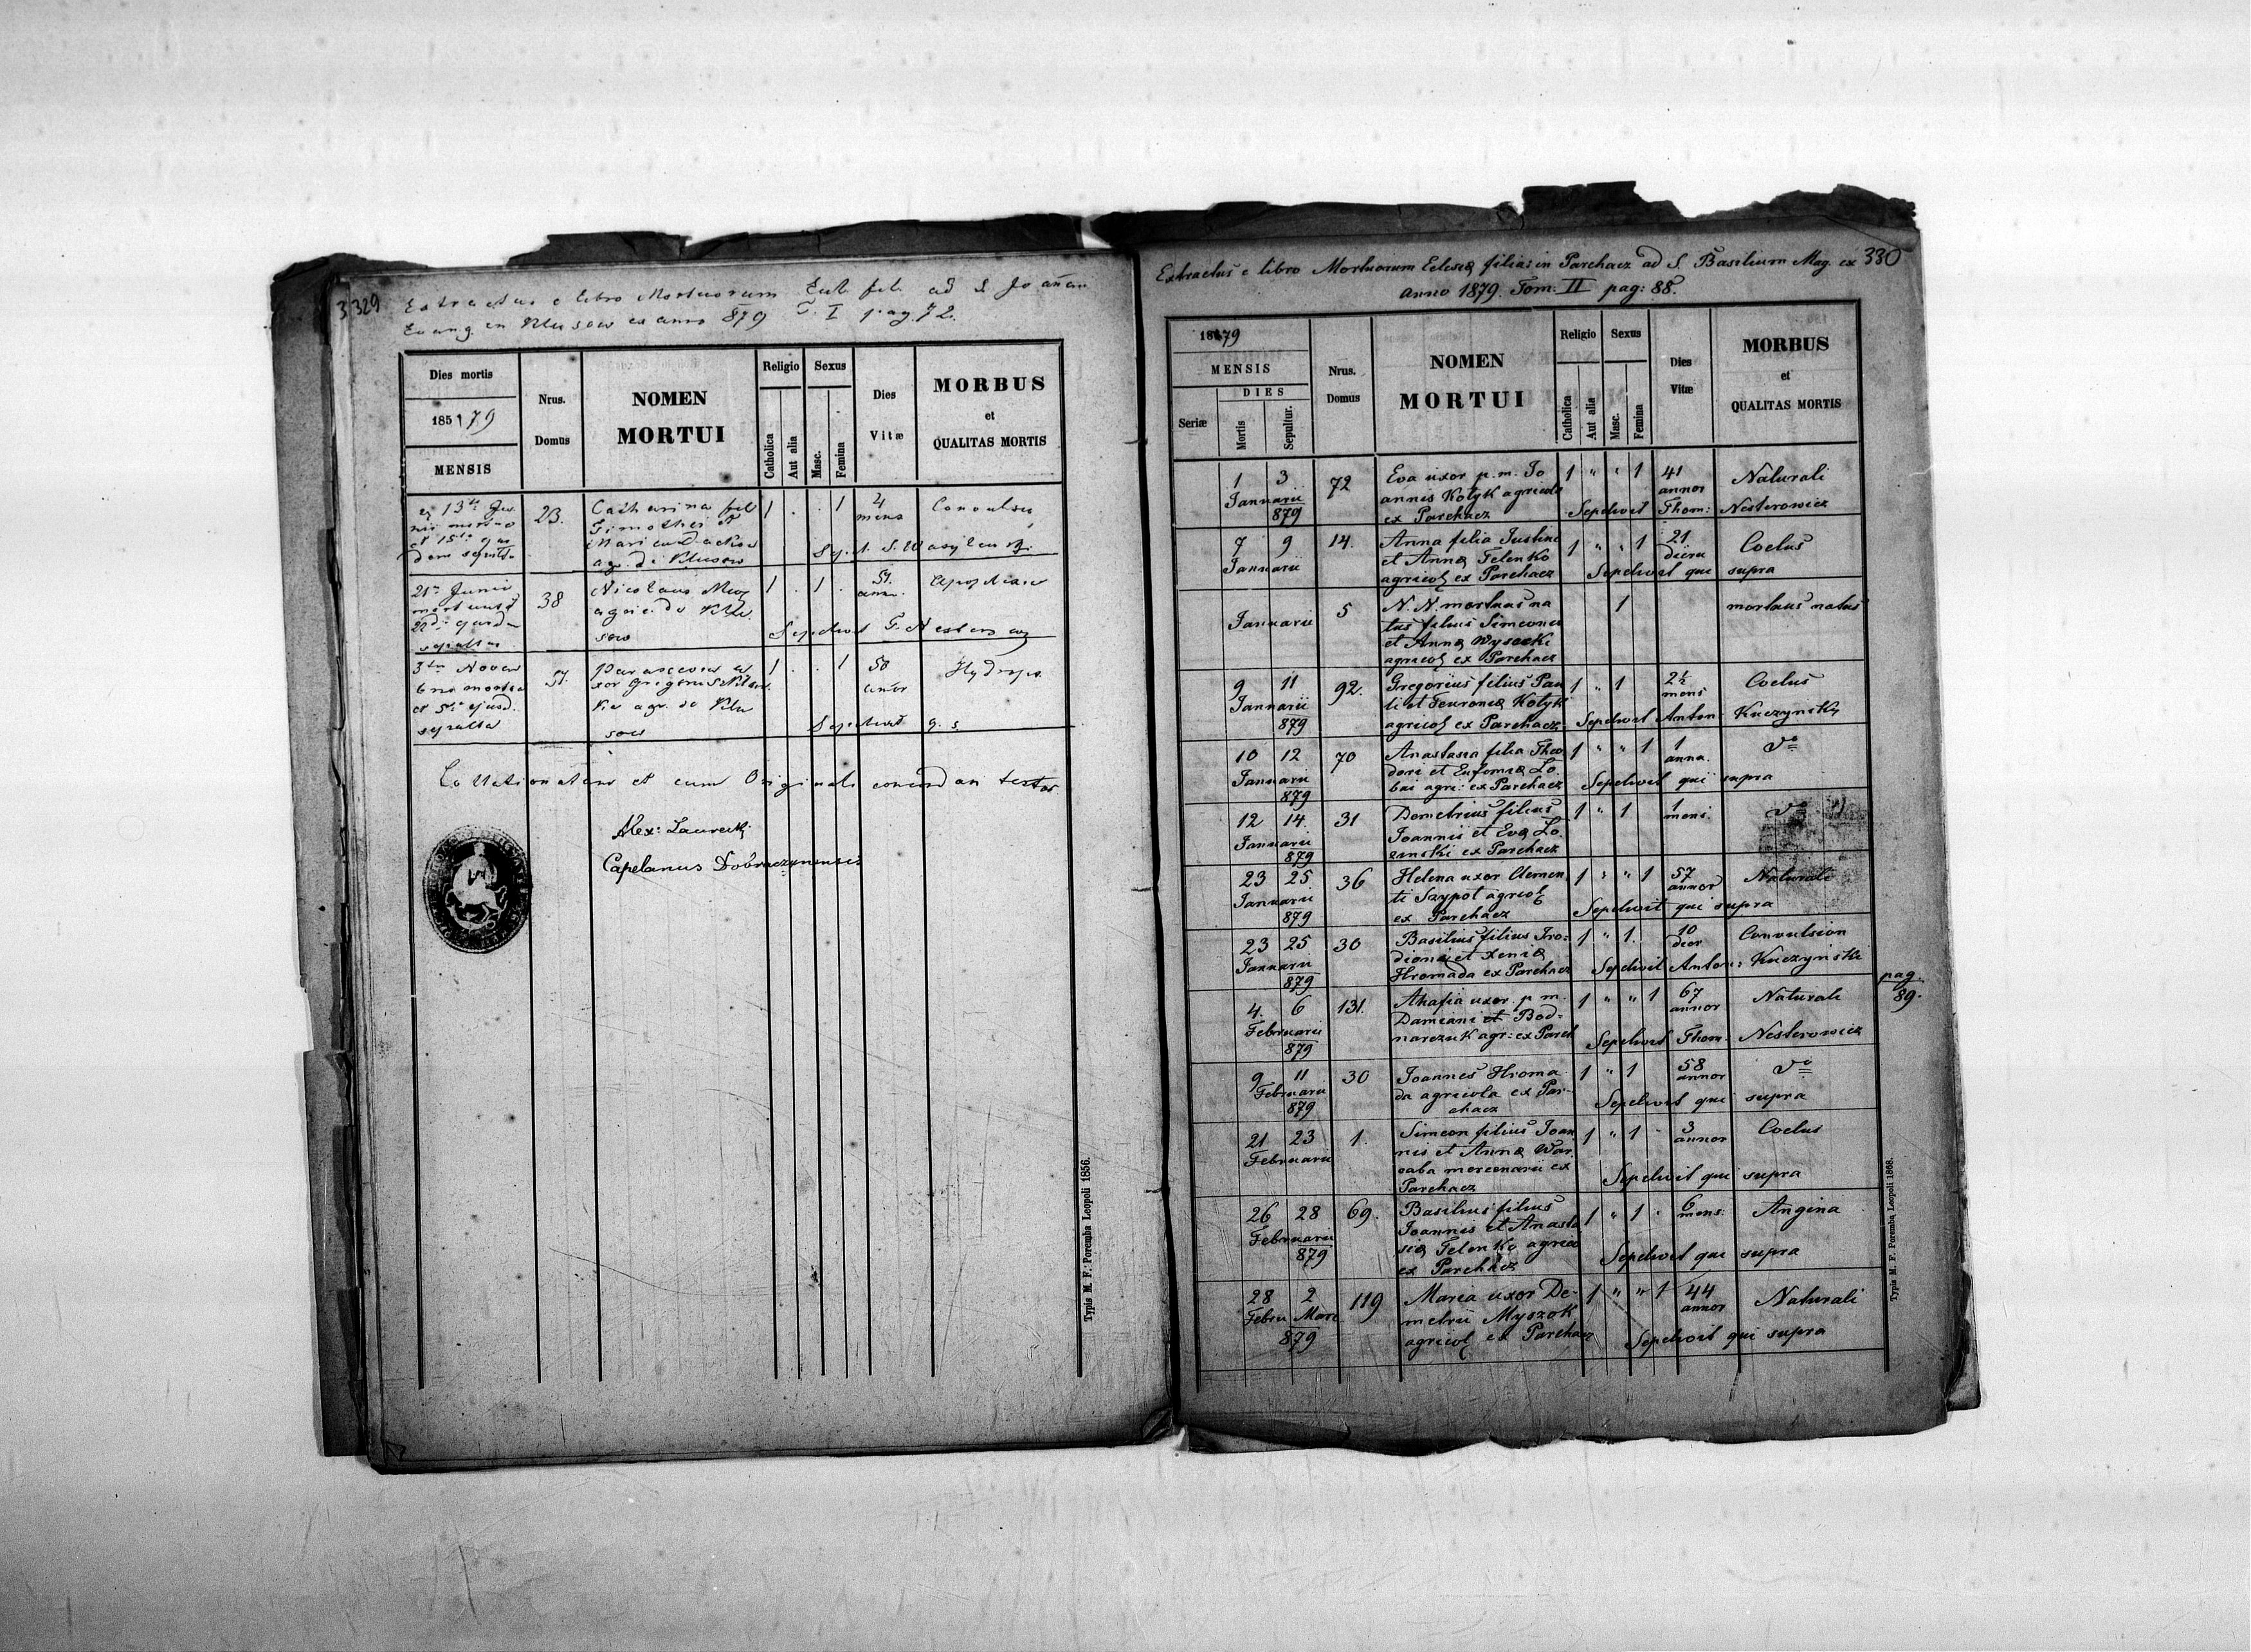 329
Extractus e libro Mortuorum Eccl. fil. ad S. Joannem
Evang. in Klusow ex anno 879 T. I pag. 72.
Dies mortis
185179
MENSIS
Nrus.
Domus
NOMEN
MORTUI
Religio
Catholica
Aut alia
Sexus
Masc.
Femina
Dies
Vitæ
MORBUS
et
QUALITAS MORTIS
13 Ju
nii mortua
et 15ta ejus
dem sepulta
23.
Catharina fil
Timothei et
Mariae
agr. de Klusow
1 . . 1
4
mens
Convulsi
21a Junii
mortuus
22da ejusd
sepultus
38
Nicolaus
agric. de Klu
sow
1 . 1 .
51.
annor
Apoplexia
Sepelivit T. Nesterowicz
3tia Novem
bris mortua
et 5ta ejusd.
sepulta
51.
Parascevia u
xor Gregorii
agr. de Klu
sow
1 . . 1
58
annor
Hydrops.
Sepelivit q. s.
Collationatum et cum Originali concordari testor
Alex: Laurecki
Capelanus Dobraczynensis
Typis M. F. Poremba Leopoli 1856.
330
Extractus e libro Mortuorum Eclesiæ filia: in Parchacz ad S. Basilium Mag. ex
Anno 1879. Tom: II pag: 88.
18679
MENSIS
Seriæ
DIES
Mortis
Sepultur.
Nrus.
Domus
NOMEN
MORTUI
Religio
Catholica
Aut alia
Sexus
Masc.
Femina
Dies
Vitæ
MORBUS
et
QUALITAS MORTIS
1 3
Januarii
879
72
Eva uxor p. m. Jo
annis Kotyk agricola
ex Parchacz
1 " " 1
41
annor
Naturali
Sepelivit Thom: Nesterowicz
7 9
Januarii
14.
Anna filia Justini
et Annæ Telenko
agricol ex Parchacz
1 " " 1
21
dieru
Coelus
Sepelivit qui supra
Januarii
5
N. N. mortuus na
tus filius Simeonis
et Annæ Wysocki
agricol ex Parchacz
1
mortuus natus
9 11
Januarii
879
92.
Gregorius filius Pau
li et Feuroniæ Kotyk
agricol ex Parchacz
1 " 1
2½
mens
Coelus
Sepelivit Anton Kuczynsky
10 12
Januarii
879
70
Anastasia filia Theo
dori et Eufemiæ Lo
bai agri: ex Parchacz
1 " " 1
1
anna.
do
Sepelivit qui supra
12 14
Januarii
879
31
Demetrius filius
Joannis et Evæ Lo
zinski ex Parchacz
1 " 1
1
mens.
do
23 25
Januarii
879
36
Helena uxor Clemen
ti Szypot agricol
ex Parchacz
1 " " 1
57
annor
Naturali
Sepelivit qui supra
23 25
Januarii
879
30
Basilius filius Iro=
dioni et Xeniæ
Hromada ex Parchacz
1 " 1.
10
dier
Convulsion
Sepelivit Anton: Kuczyński
pag.
89.
4. 6
Februarii
879
131.
Ahafia uxor. p m.
Damiani et Bod=
narczuk agr: ex Parch
1 " " 1
67
annor
Naturali
Sepelivit Thom. Nesterowicz
9 11
Februarii
879
30
Joannes Hroma
da agricola ex Par-
chacz
1 " 1
58
annor
do
Sepelivit qui supra
21 23
Februarii
1.
Simeon filius Joan
nis et Annæ War
caba mercenarii ex
Parchacz
1 " 1 "
3
annor
Coelus
Sepelivit qui supra
26 28
Februarii
879
69.
Basilius filius
Joannis et Anasta
siæ Telenko agrico
ex Parchacz
1 " 1 "
6
mens:
Angina
Sepelivit qui supra
28 2
Febru Mart
879
119
Maria uxor De-
metrii Myszok
agricol ex Parchacz
1 " " 1
44
annor
Naturali
Sepelivit qui supra
Typis M. F. Poremba Leopoli 1868.